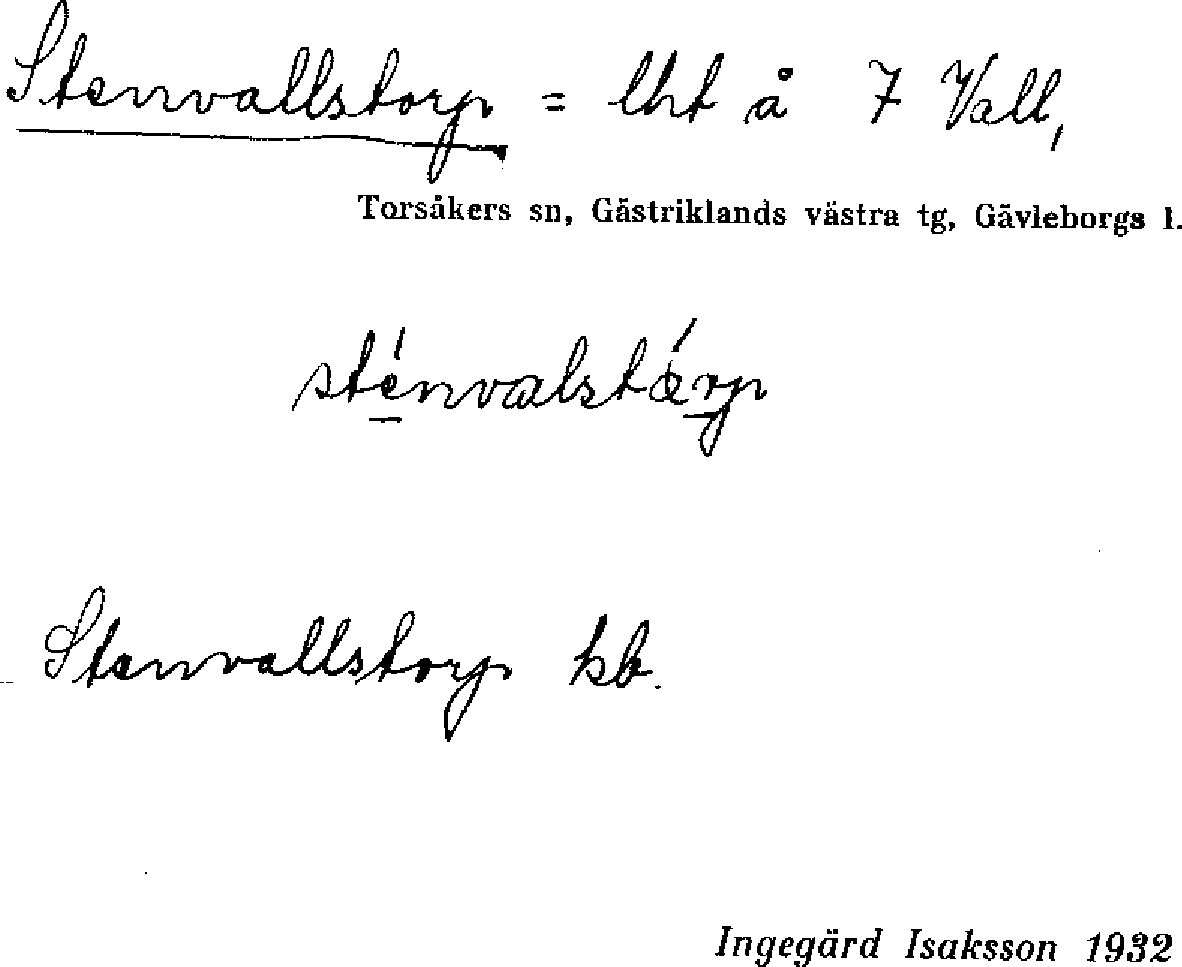 Stenvallstorp = lht å 7 Vall,
Torsåkers sn, Gästriklands västra tg, Gävleborgs l.
sténvalstárp
Stenvallstorp kb.
Ingegärd Isaksson 1932